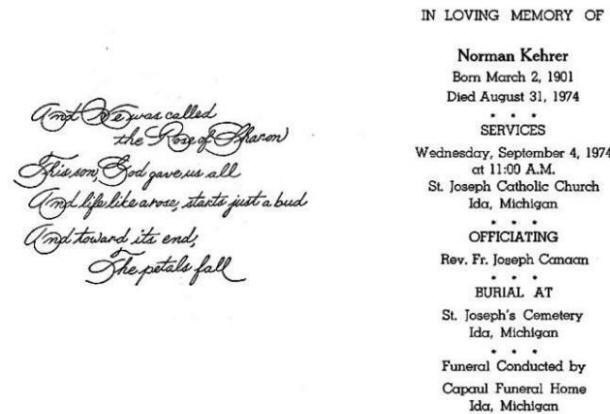 And He was called
the Rose of Sharon
This son, God gave us all
And life like a rose, starts just a bud
And toward its end,
The petals fall
IN LOVING MEMORY OF
Norman Kehrer
Born March 2, 1901
Died August 31, 1974
• • •
SERVICES
Wednesday, September 4, 1974
at 11:00 A.M.
St. Joseph Catholic Church
Ida, Michigan
• • •
OFFICIATING
Rev. Fr. Joseph Canaan
• • •
BURIAL AT
St. Joseph's Cemetery
Ida, Michigan
• • •
Funeral Conducted by
Capaul Funeral Home
Ida, Michigan